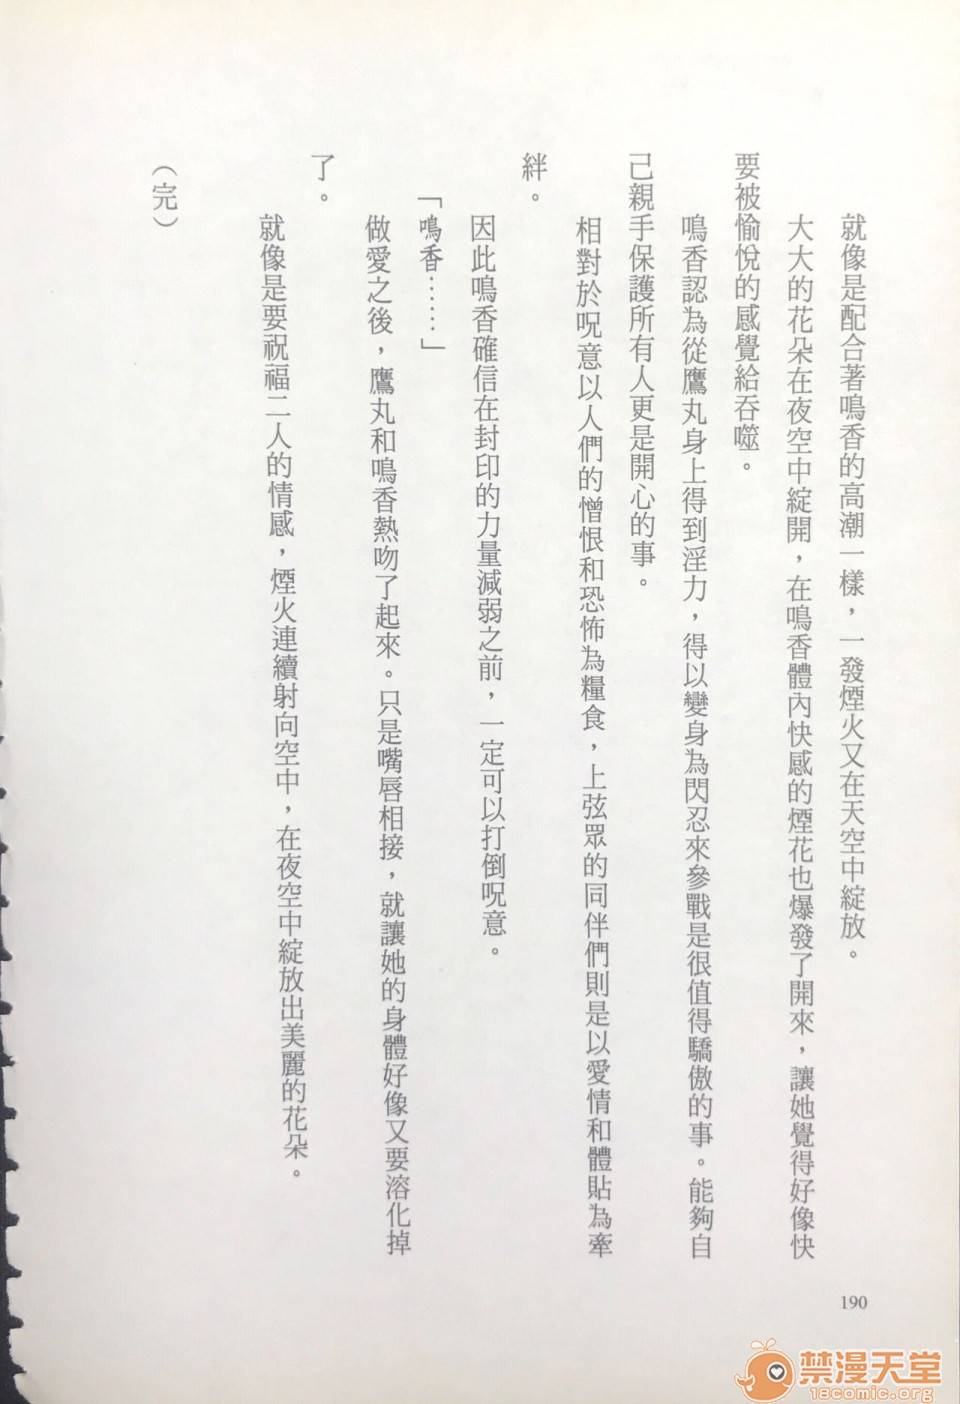 就像是配合著鳴香的高潮一樣，一發煙火又在天空中綻放。
大大的花朵在夜空中綻開，在鳴香體內快感的煙花也爆發了開來，讓她覺得好像快
要被愉悅的感覺給吞噬。
鳴香認為從鷹丸身上得到淫力，得以變身為閃忍來參戰是很值得驕傲的事。能夠自
己親手保護所有人更是開心的事。
相對於呪意以人們的憎恨和恐怖為糧食，上弦眾的同伴們則是以愛情和體貼為牽
絆。
因此鳴香確信在封印的力量減弱之前，一定可以打倒呪意。
「鳴香……」
做愛之後，鷹丸和鳴香熱吻了起來。只是嘴唇相接，就讓她的身體好像又要溶化掉
了。
就像是要祝福二人的情感，煙火連續射向空中，在夜空中綻放出美麗的花朵。
（完）
190
禁漫天堂
18comic.org